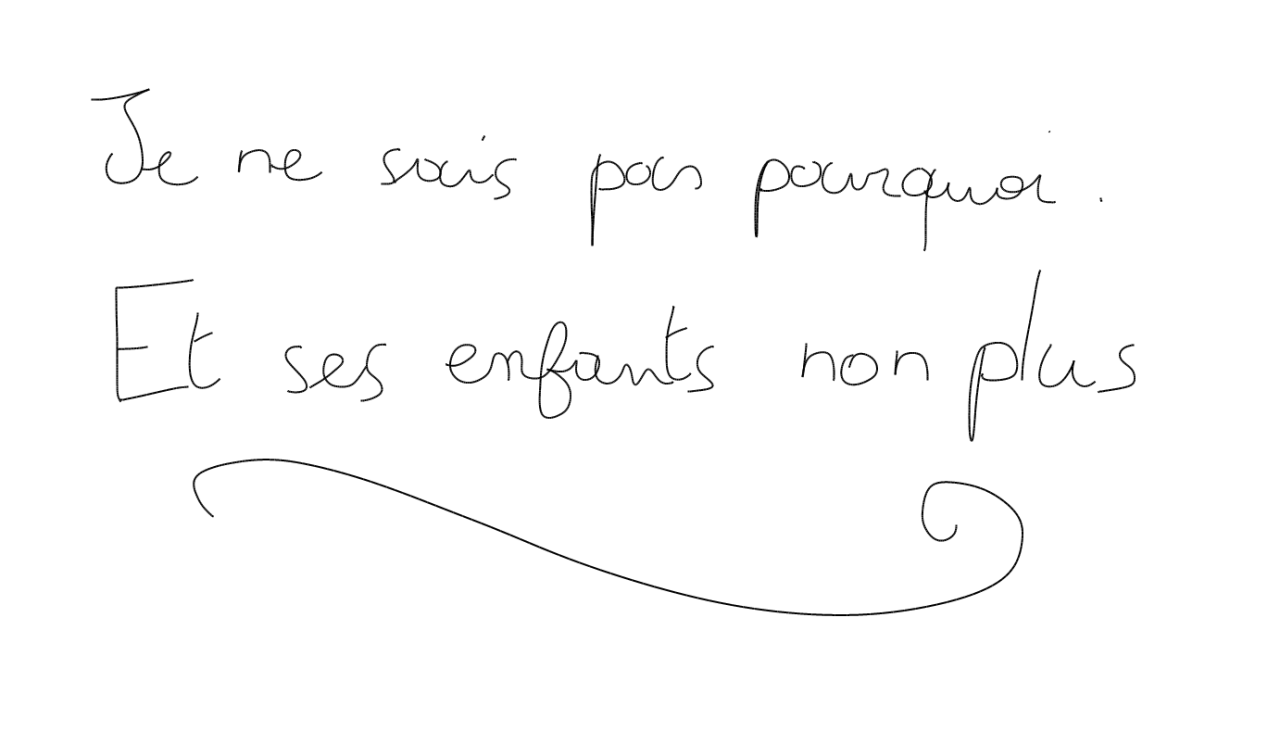 Je ne sais pas pourquoi.
Et ses enfants non plus